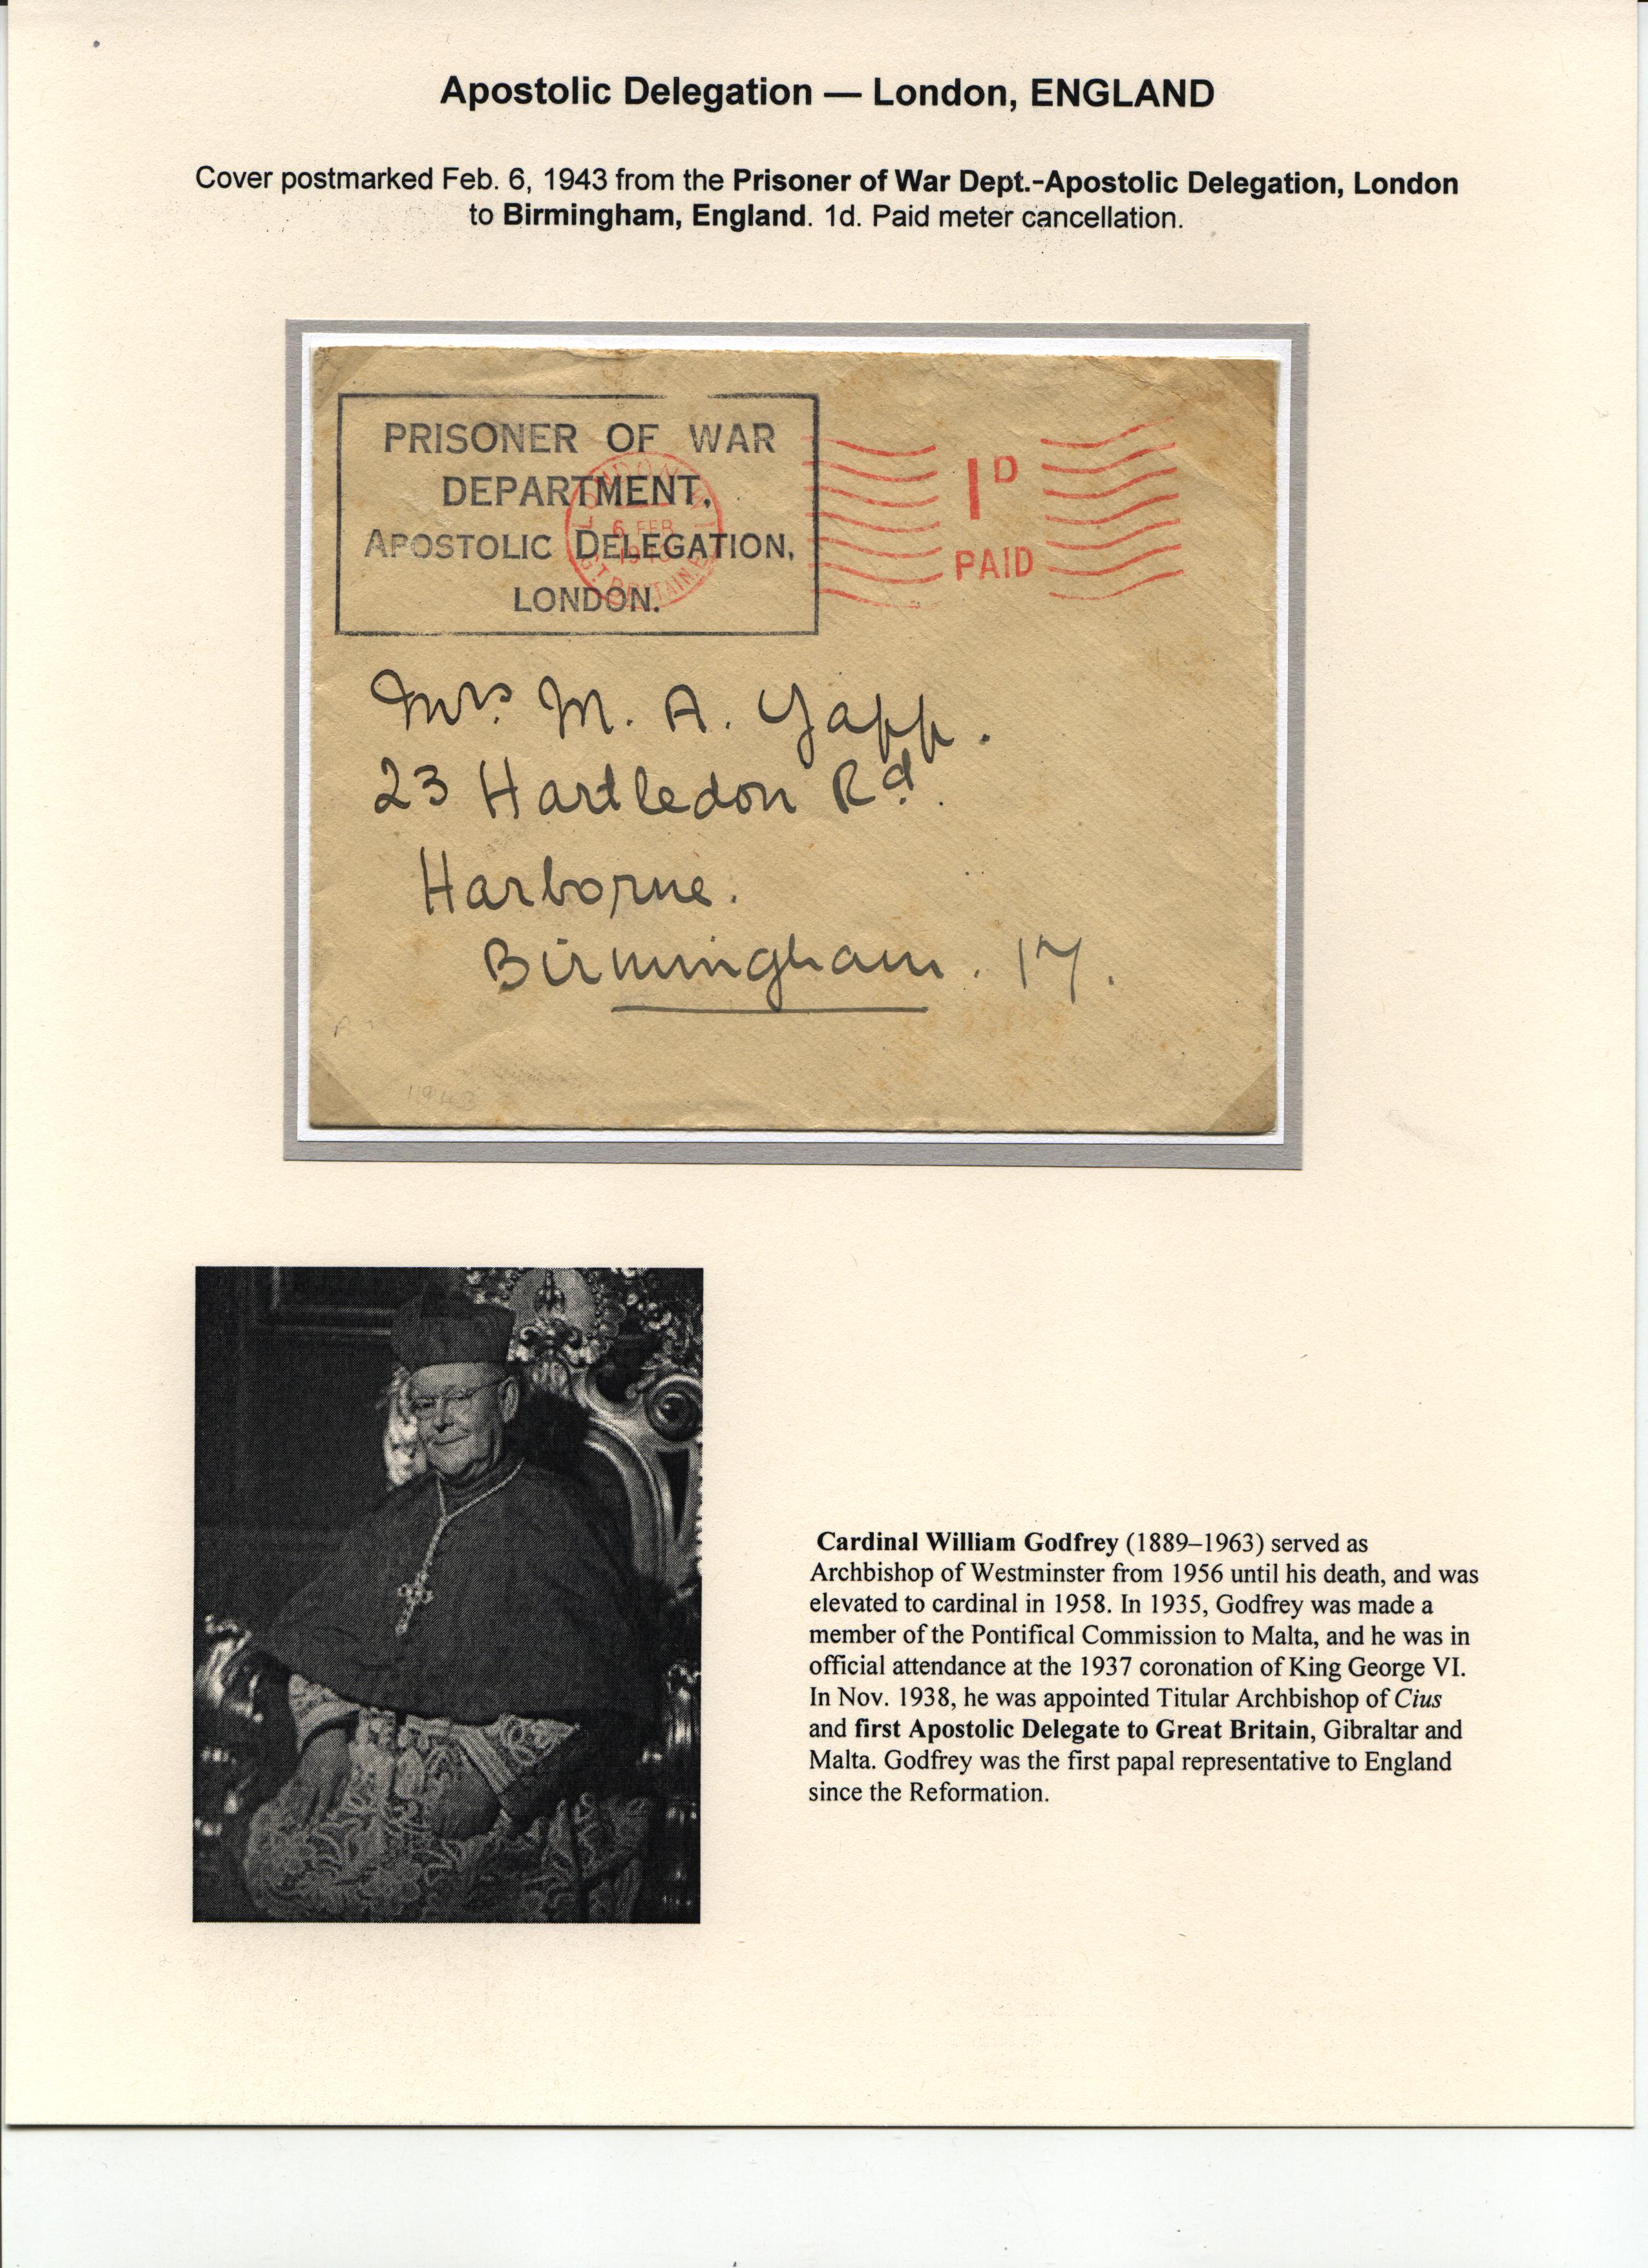 Apostolic Delegation — London, ENGLAND
Cover postmarked Feb. 6, 1943 from the Prisoner of War Dept.-Apostolic Delegation, London
to Birmingham, England. 1d. Paid meter cancellation.
PRISONER OF WAR
DEPARTMENT,
APOSTOLIC DELEGATION,
LONDON.
LONDON
6 FEB
GT. BRITAIN
1D
PAID
Mrs. M. A. Yapp.
23 Hartledon Rd.
Harborne.
Birmingham. 17.
1943
Cardinal William Godfrey (1889–1963) served as
Archbishop of Westminster from 1956 until his death, and was
elevated to cardinal in 1958. In 1935, Godfrey was made a
member of the Pontifical Commission to Malta, and he was in
official attendance at the 1937 coronation of King George VI.
In Nov. 1938, he was appointed Titular Archbishop of Cius
and first Apostolic Delegate to Great Britain, Gibraltar and
Malta. Godfrey was the first papal representative to England
since the Reformation.